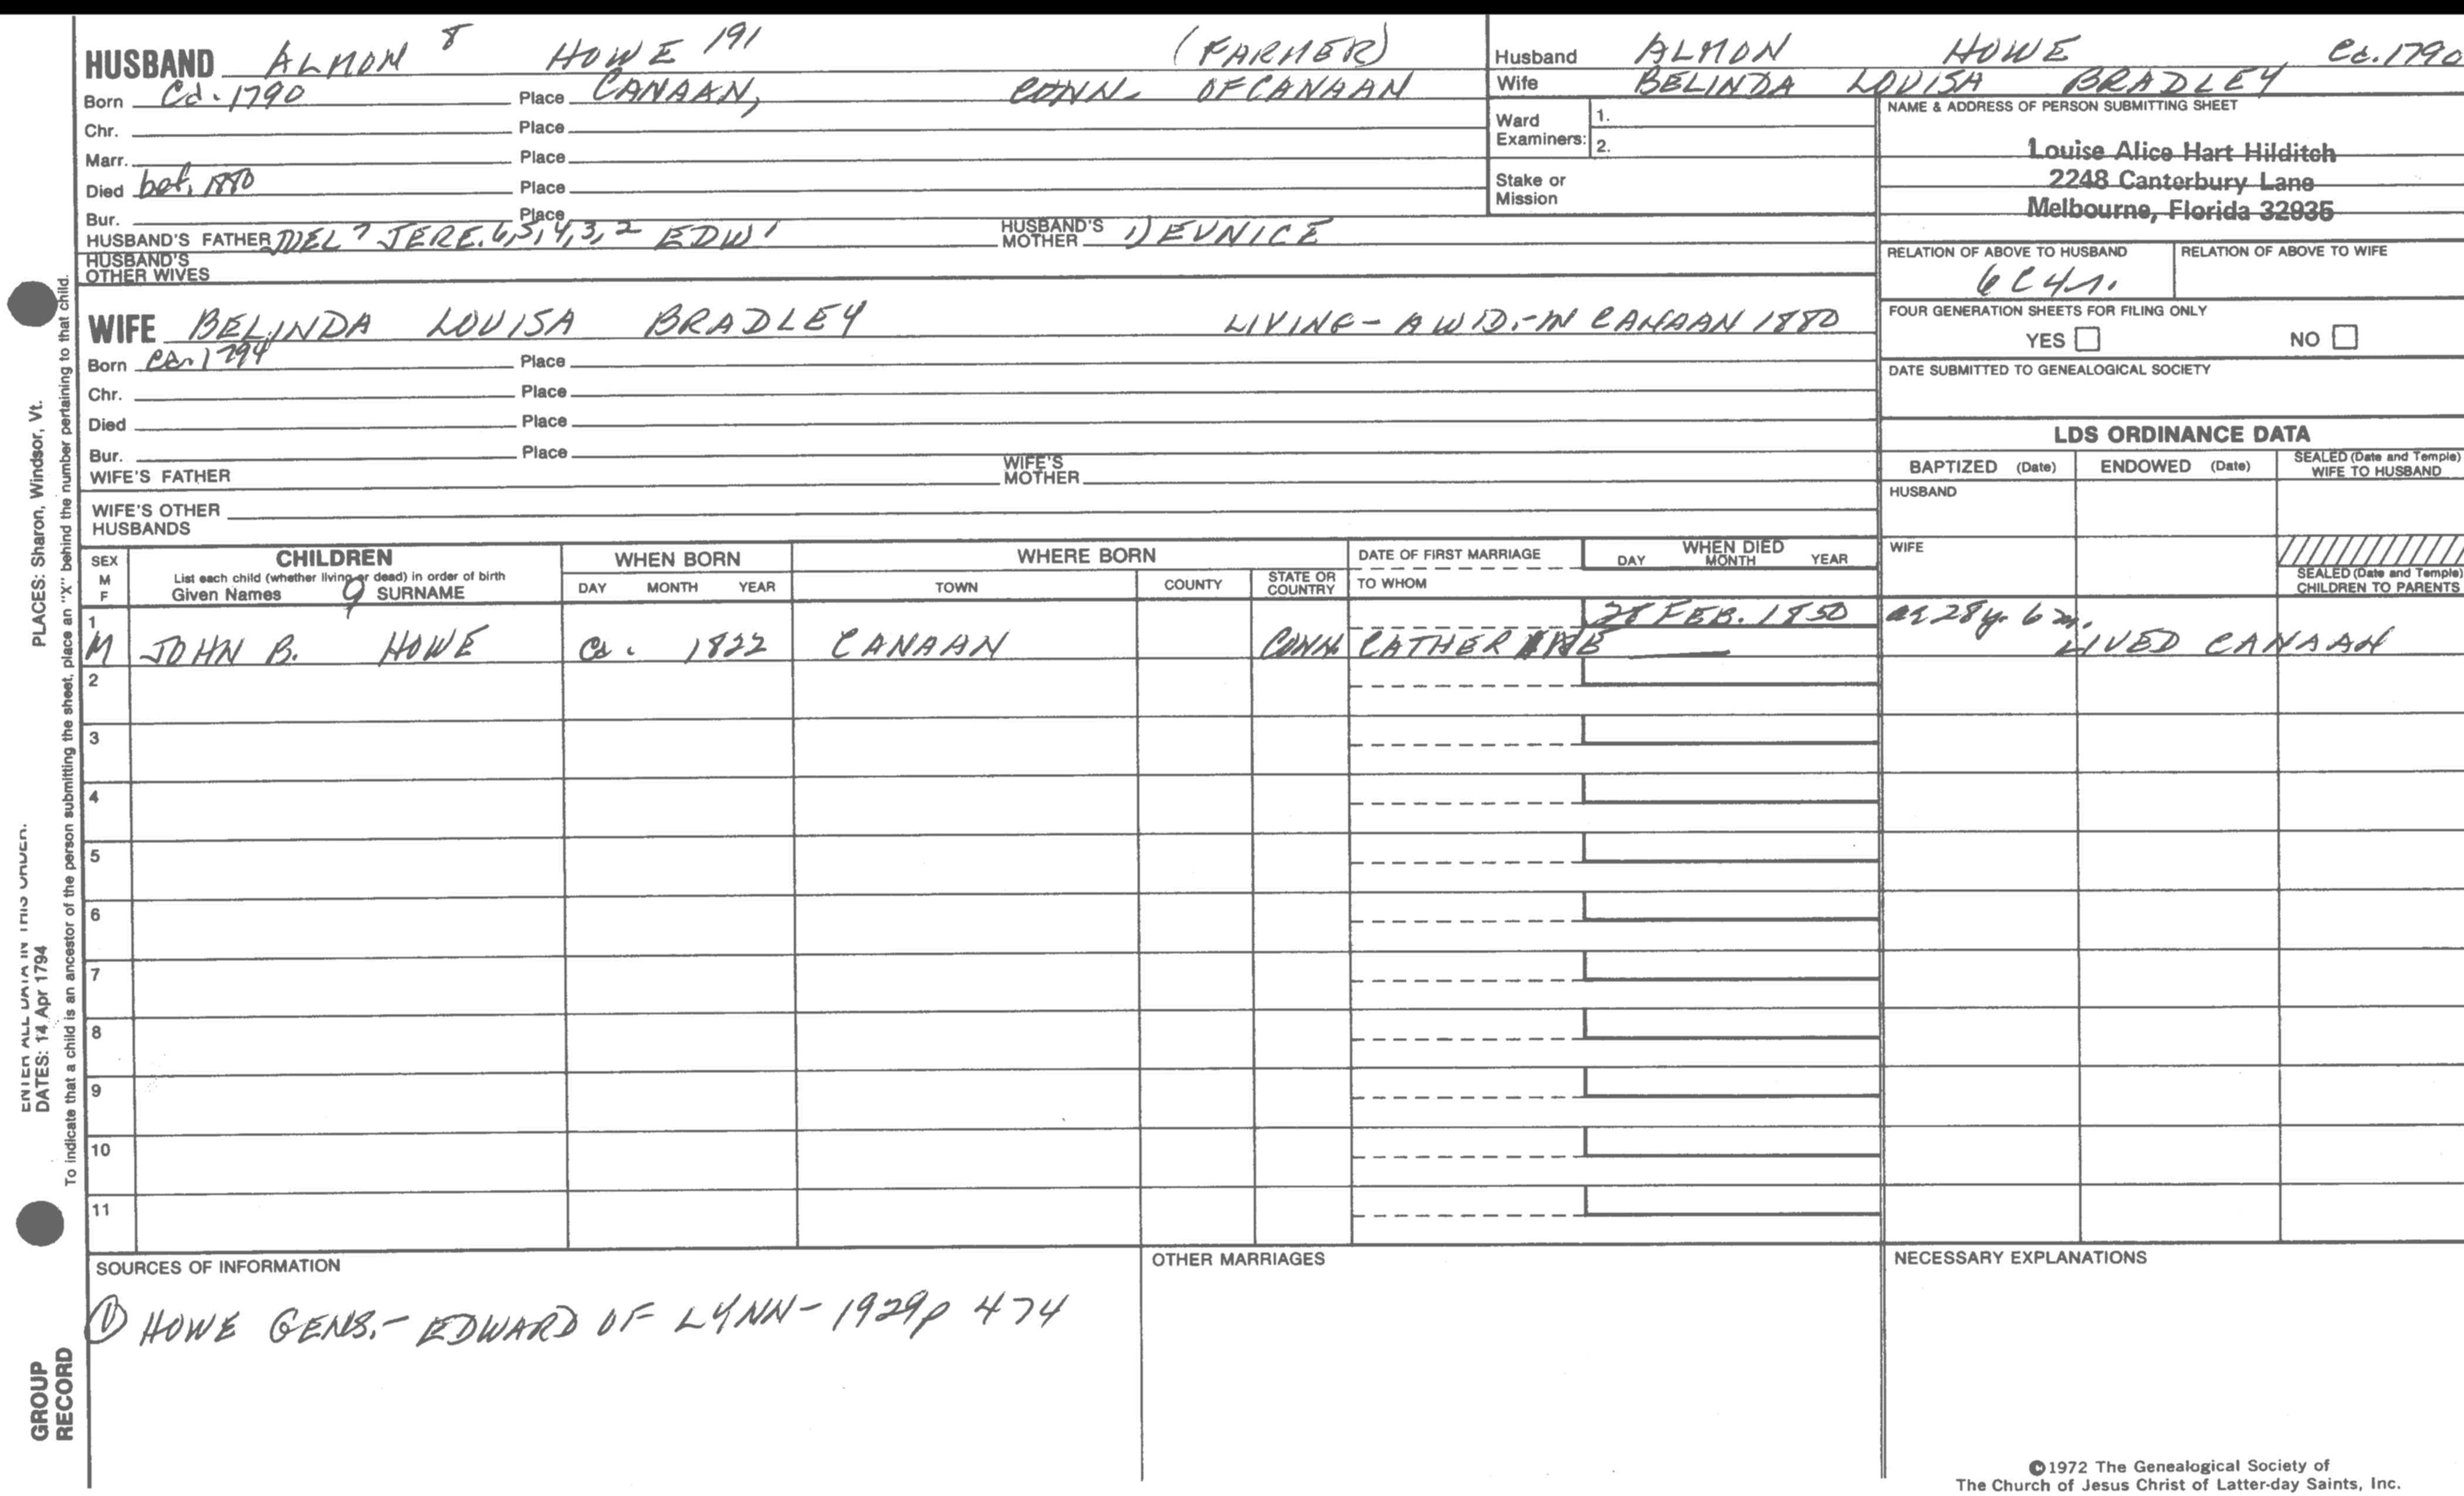 HUSBAND ALMON 8 HOWE 191 (FARMER)
Born Ca. 1790 Place CANAAN, CONN. OF CANAAN
Chr. Place
Marr. Place
Died bef. 1880 Place
Bur. Place
HUSBAND'S FATHER DIEL 7 JERE. 6,5,4,3,2 EDW 1 HUSBAND'S MOTHER 1) EUNICE
HUSBAND'S
OTHER WIVES
WIFE BELINDA LOUISA BRADLEY LIVING - A WID. - IN CANAAN 1880
Born Ca. 1794 Place
Chr. Place
Died Place
Bur. Place
WIFE'S FATHER WIFE'S MOTHER
WIFE'S OTHER
HUSBANDS
Husband ALMON HOWE Ca. 1790
Wife BELINDA LOUISA BRADLEY
Ward
Examiners: 1.
2.
Stake or
Mission
NAME & ADDRESS OF PERSON SUBMITTING SHEET
Louise Alice Hart Hilditch
2248 Canterbury Lane
Melbourne, Florida 32935
RELATION OF ABOVE TO HUSBAND RELATION OF ABOVE TO WIFE
6C4r.
FOUR GENERATION SHEETS FOR FILING ONLY
YES NO
DATE SUBMITTED TO GENEALOGICAL SOCIETY
LDS ORDINANCE DATA
BAPTIZED (Date) ENDOWED (Date) SEALED (Date and Temple)
WIFE TO HUSBAND
HUSBAND
WIFE
SEALED (Date and Temple)
CHILDREN TO PARENTS
SEX
M
F
CHILDREN
List each child (whether living or dead) in order of birth
Given Names 9 SURNAME
WHEN BORN
DAY MONTH YEAR
WHERE BORN
TOWN COUNTY STATE OR COUNTRY
DATE OF FIRST MARRIAGE
TO WHOM
WHEN DIED
DAY MONTH YEAR
1 28 FEB. 1850 ae 28y. 6 m.
M JOHN B. HOWE Ca. 1822 CANAAN CONN. CATHERINE LIVED CANAAN
2
3
4
5
6
7
8
9
10
11
SOURCES OF INFORMATION
① HOWE GENS. - EDWARD OF LYNN - 1929 p 474
OTHER MARRIAGES
NECESSARY EXPLANATIONS
©1972 The Genealogical Society of
The Church of Jesus Christ of Latter-day Saints, Inc.
ENTER ALL DATA IN THIS ORDER.
DATES: 14 Apr 1794
PLACES: Sharon, Windsor, Vt.
To indicate that a child is an ancestor of the person submitting the sheet, place an "X" behind the number pertaining to that child.
GROUP
RECORD